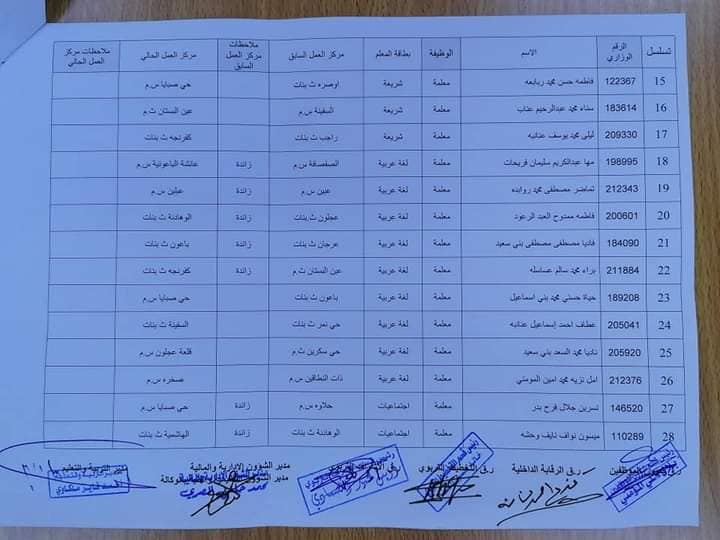 تسلسل الرقم الوزاري الاسم الوظيفة بطاقة المعلم مركز العمل السابق ملاحظات مركز العمل السابق مركز العمل الحالي ملاحظات مركز العمل الحالي
15 122367 فاطمه حسن محمد ربابعه معلمة شريعة اوصره ث بنات حي صبايا س.م
16 183614 سناء محمد عبدالرحيم عناب معلمة شريعة السفينة س.م عين البستان ث.م
17 209330 ليلى محمد يوسف عنانبه معلمة شريعة راجب ث بنات كفرنجه ث بنات
18 198995 مها عبدالكريم سليمان فريحات معلمة لغة عربية الصفصافة س.م زائدة عائشة الباعونية س.م
19 212343 تماضر مصطفى محمد روابده معلمة لغة عربية عبين س.م زائدة عبلين س.م
20 200601 فاطمه ممدوح العبد الزغود معلمة لغة عربية عجلون ث بنات زائدة الوهادنة ث بنات
21 184090 فاديا مصطفى مصطفى بني سعيد معلمة لغة عربية عرجان ث بنات زائدة باعون ث بنات
22 211884 براء محمد سالم عسامله معلمة لغة عربية عين البستان ث.م زائدة كفرنجه ث بنات
23 189208 حياة حسني محمد بني اسماعيل معلمة لغة عربية باعون ث بنات حي صبايا س.م
24 205041 عطاف احمد إسماعيل عنانبه معلمة لغة عربية حي نمر ث بنات السفينة ث بنات
25 205920 ناديا محمد السعد بني سعيد معلمة لغة عربية حي سكرين ث.م قلعة عجلون س.م
26 212376 امل نزيه محمد امين المومني معلمة لغة عربية ذات النطاقين س.م صخره س.م
27 146520 نسرين جلال فرح بدر معلمة اجتماعيات حلاوه س.م زائدة حي صبايا س.م
28 110289 ميسون نواف نايف وحشه معلمة اجتماعيات الوهادنة ث بنات زائدة الهاشمية ث بنات
ر.ق الرقابة الداخلية مدير الشؤون الادارية والمالية مدير التربية والتعليم